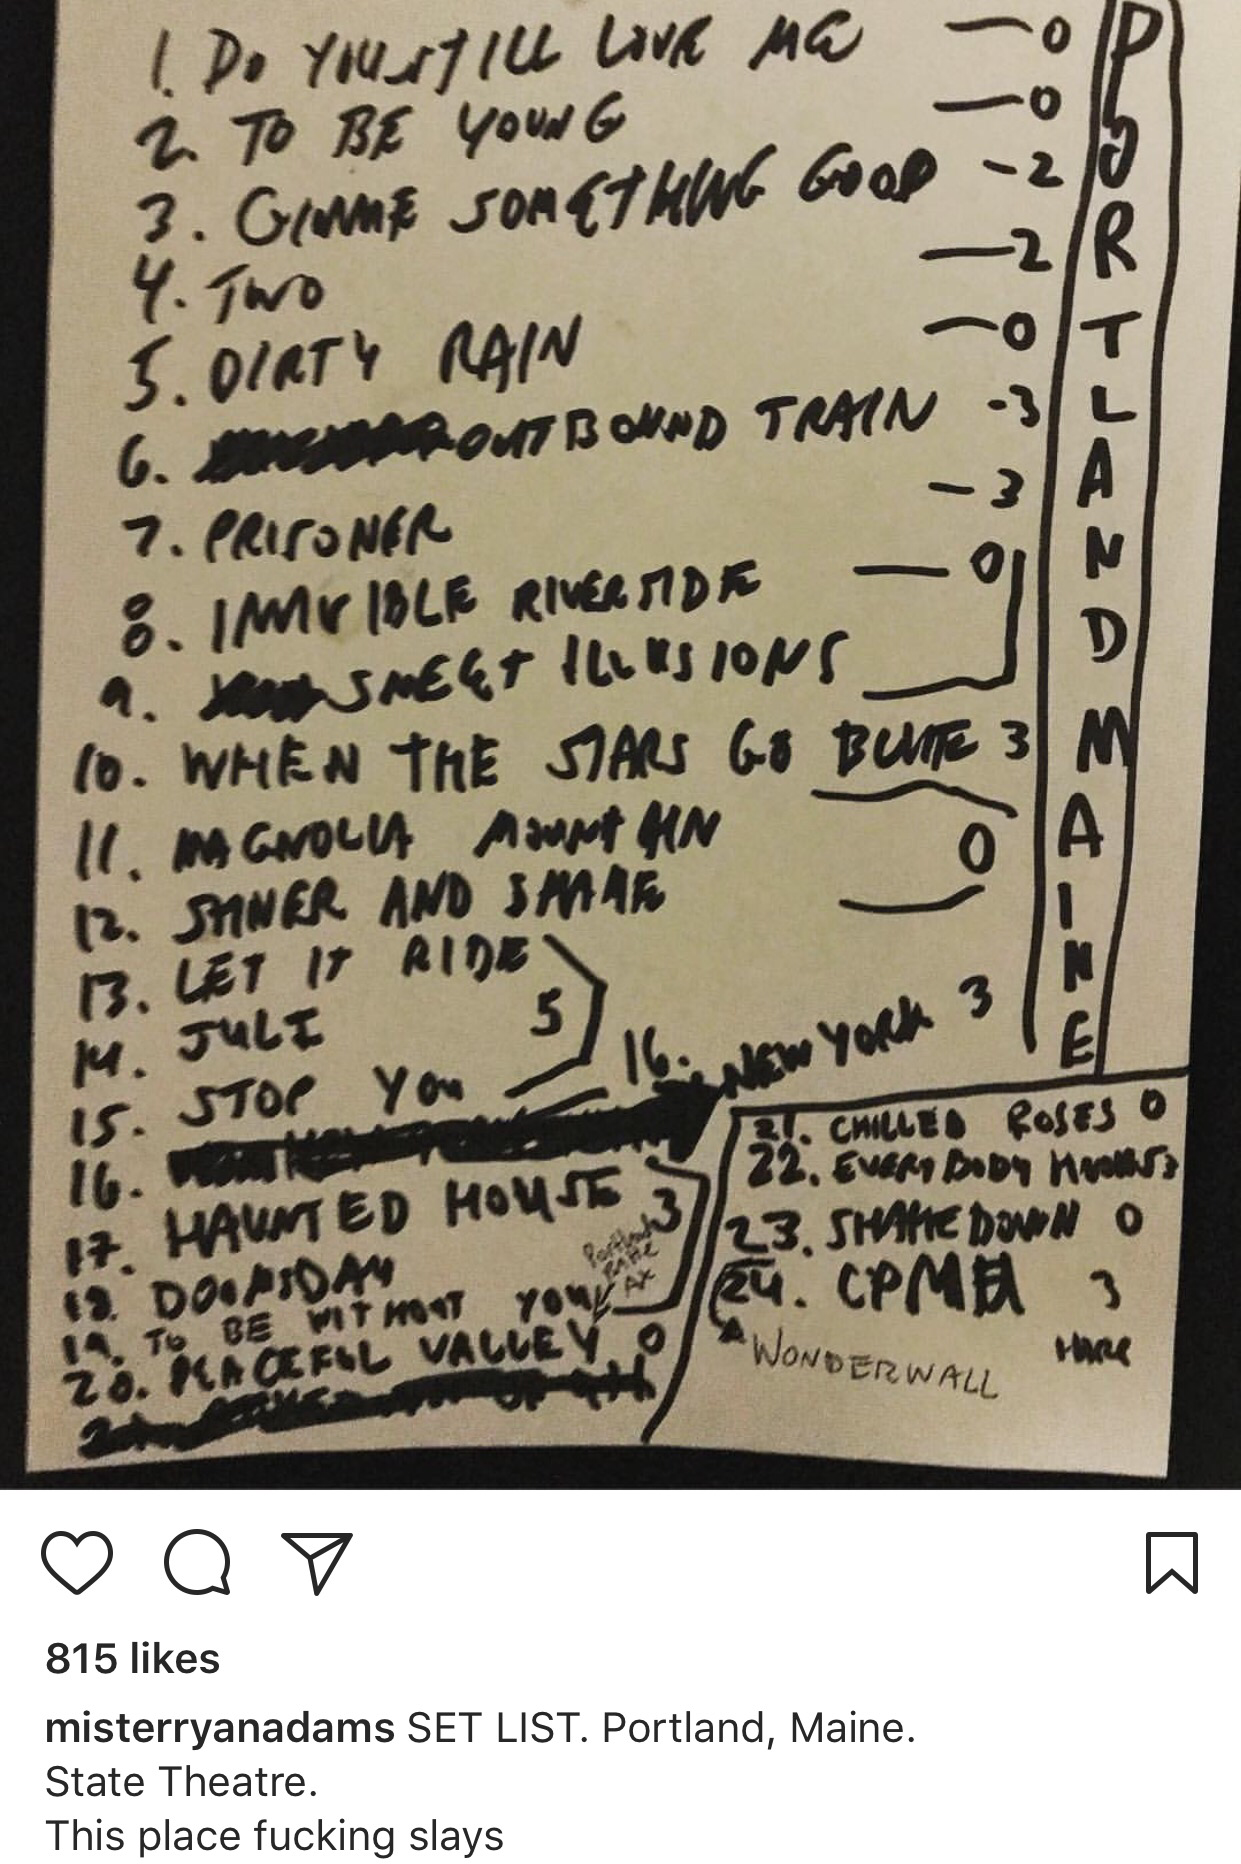 1. DO YOU STILL LOVE ME — 0
2. TO BE YOUNG — 0
3. GIMME SOMETHING GOOD - 2
4. TWO — 2
5. DIRTY RAIN — 0
6. OUTBOUND TRAIN - 3
7. PRISONER - 3
8. INVISIBLE RIVERSIDE — 0
9. SWEET ILLUSIONS
10. WHEN THE STARS GO BLUE 3
11. MAGNOLIA MOUNTAIN
0
12. SHINER AND SHAKE
13. LET IT RIDE
14. JULI 5
15. STOP YOU
16. NEW YORK 3
16.
17. HAUNTED HOUSE 3
18. DOOMSDAY
19. TO BE WITHOUT YOU
20. PEACEFUL VALLEY 0
PORTLAND MAINE
21. CHILLED ROSES 0
22. EVERYBODY KNOWS 3
23. SHAKEDOWN 0
24. CPMH 3
WONDERWALL
815 likes
misterryanadams SET LIST. Portland, Maine.
State Theatre.
This place fucking slays